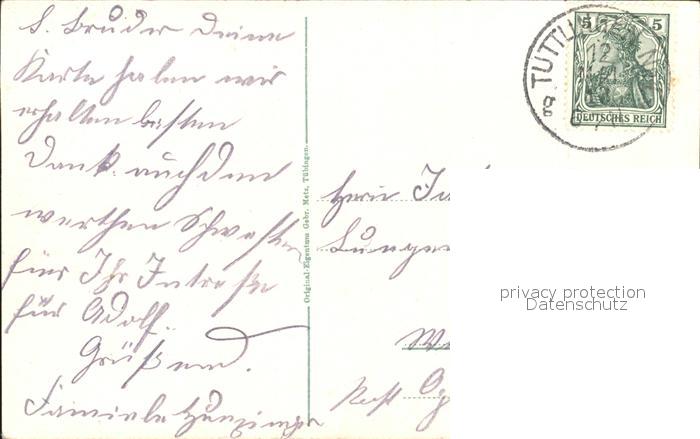 L. Bruder Deine
Karte haben wir
erhalten besten
Dank. auch den
werthen Schwestern
für Ihr Intreße
für Adolf.
Grüßend.
Familie
Original-Eigentum Gebr. Metz, Tübingen.
TUTTLINGEN
5 5
DEUTSCHES REICH
Herrn
privacy protection
Datenschutz
Post